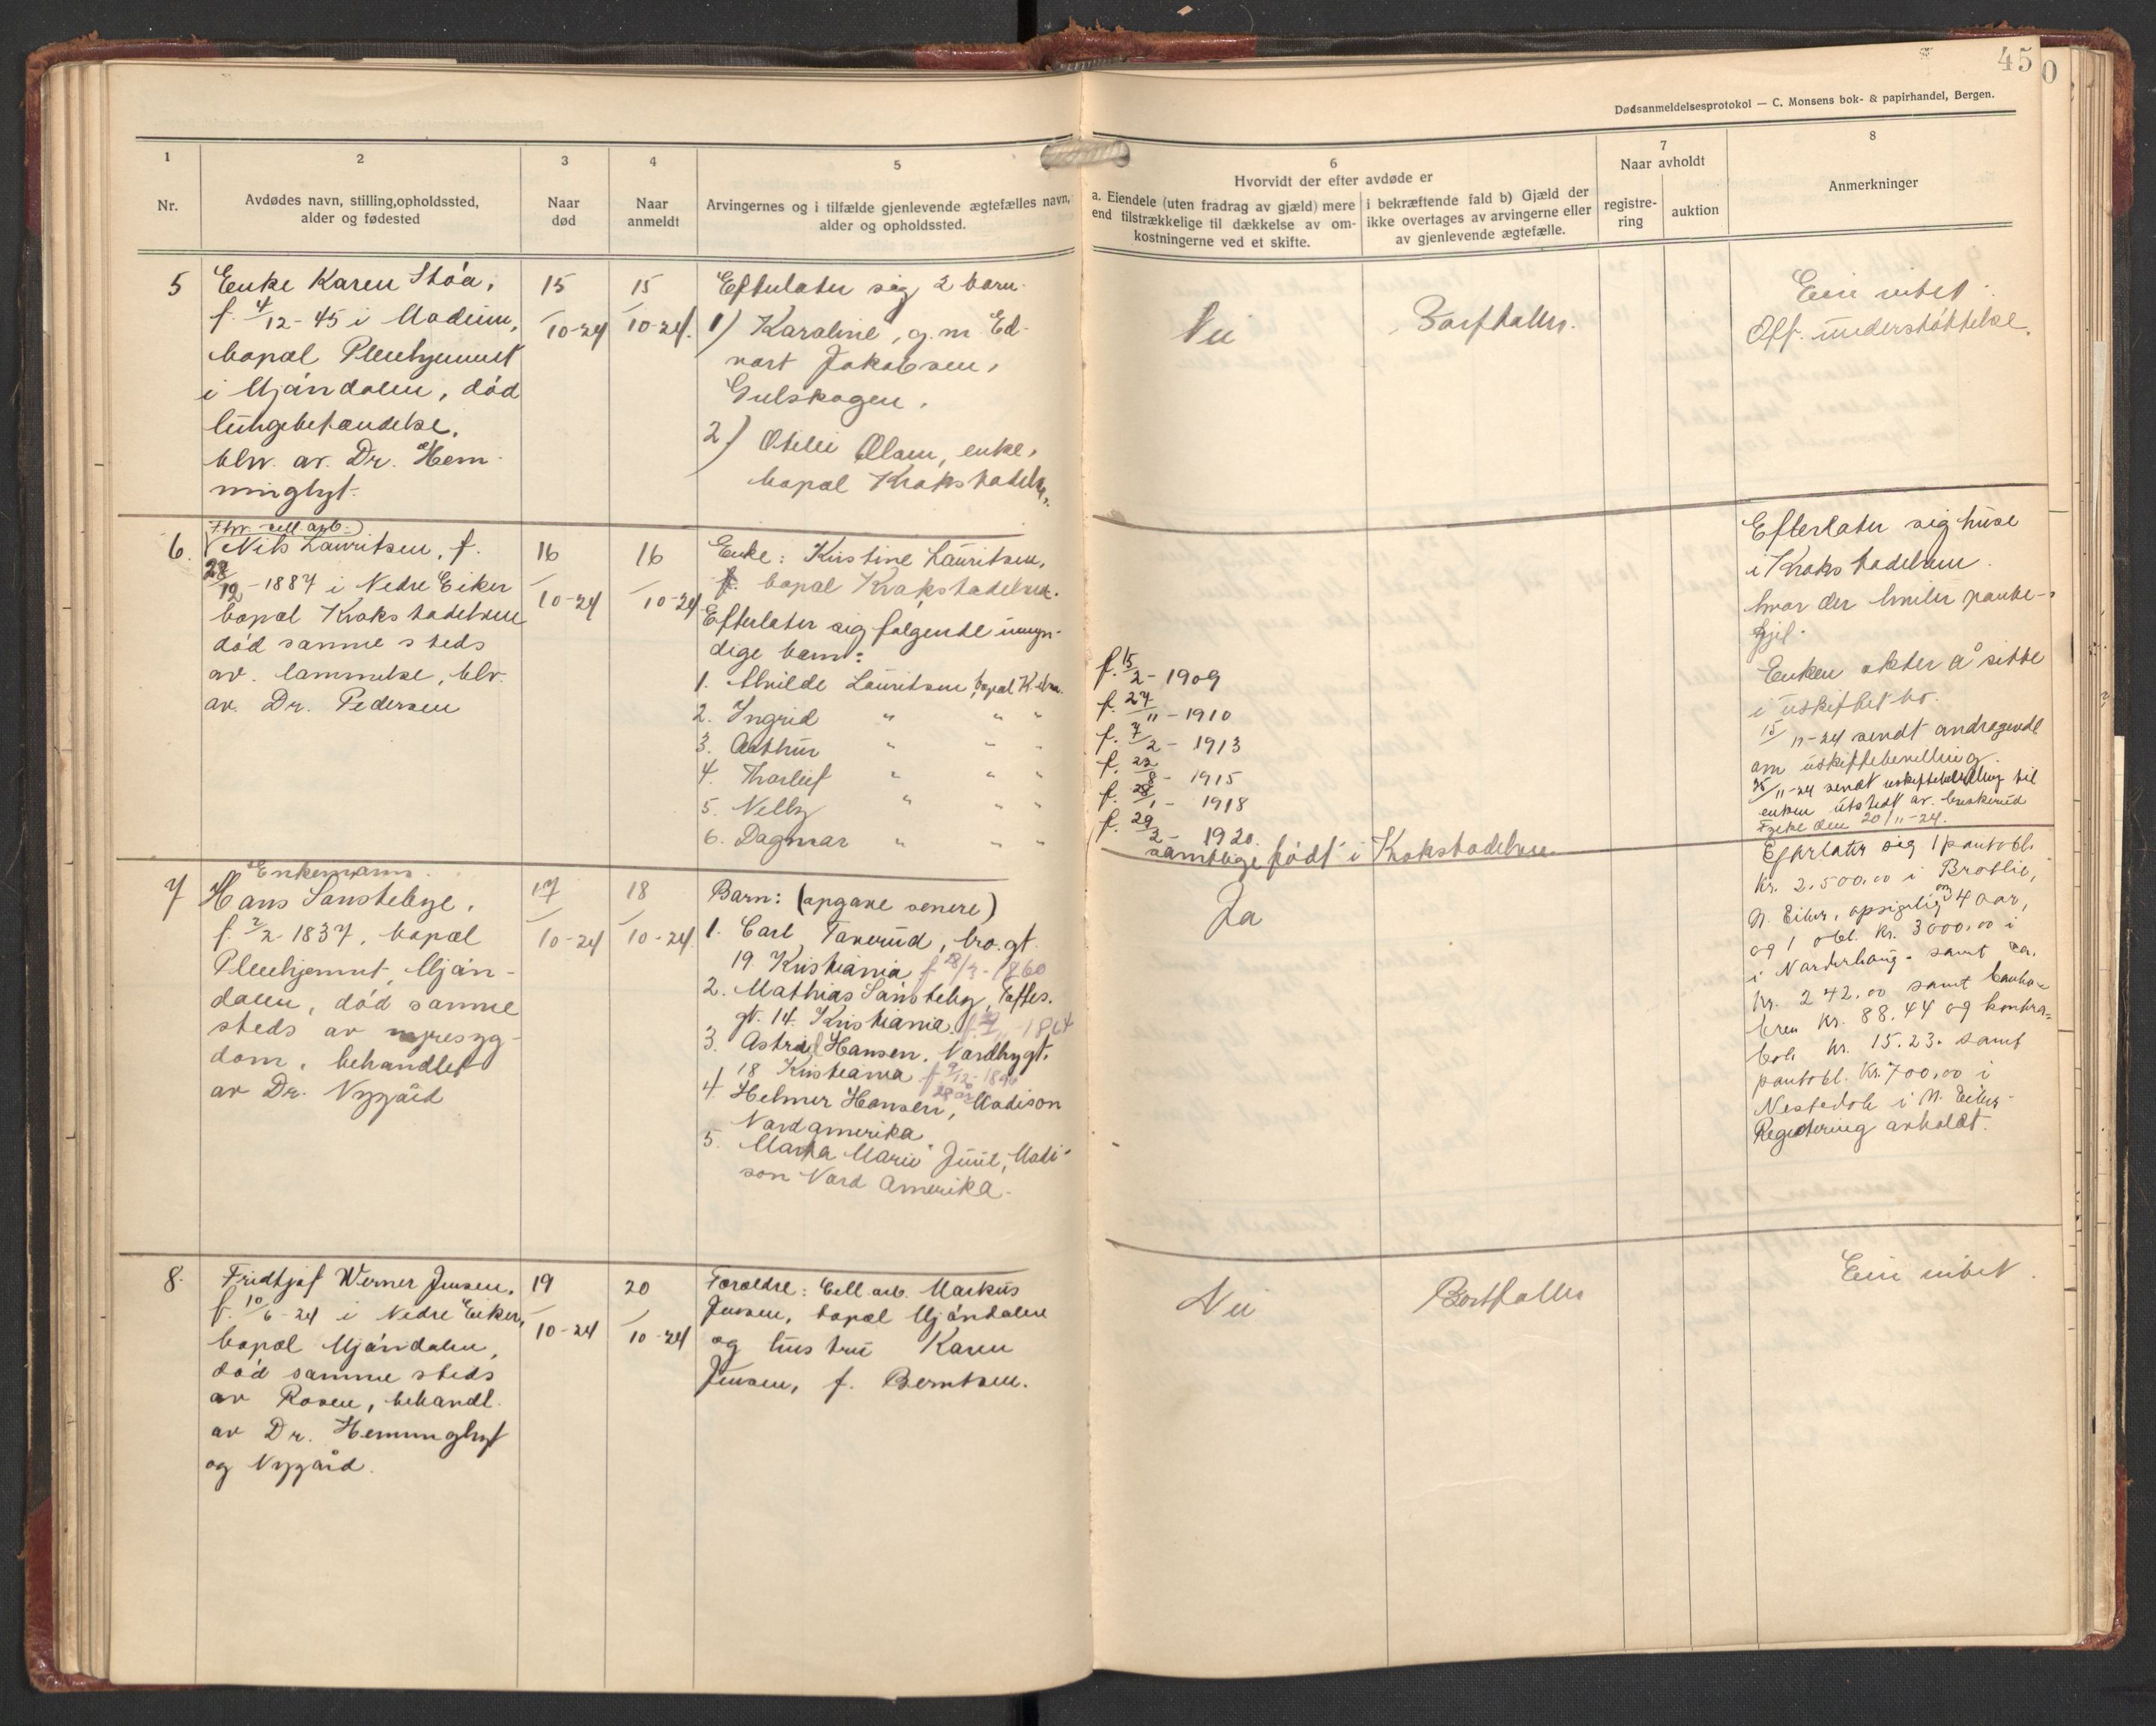 450
Dødsanmeldelsesprotokol — C. Monsens bok- & papirhandel, Bergen.
1
Nr.
2
Avdødes navn, stilling, opholdssted,
alder og fødested
3
Naar
død
4
Naar
anmeldt
5
Arvingernes og i tilfælde gjenlevende ægtefælles navn,
alder og opholdssted.
6
Hvorvidt der efter avdøde er
a. Eiendele (uten fradrag av gjæld) mere
end tilstrækkelige til dækkelse av om-
kostningerne ved et skifte.
i bekræftende fald b) Gjæld der
ikke overtages av arvingerne eller
av gjenlevende ægtefælle.
7
Naar avholdt
registre-
ring
auktion
8
Anmerkninger
5
Enke Karen Stóa,
f. 4/12-45 i Modum,
bopæl Pleiehjemmet
i Mjøndalen, død
lungebetændelse,
beh. av. Dr. Hem-
minghyt.
15/10-24
15/10-24.
Efterlater sig 2 barn.
1) Karoline, g. m. Ed-
vart Jakobsen,
Gulskogen.
2) Otilie Olsen, enke,
bopæl Krokstadelva.
Nei
Bortfaller.
Eier intet.
Off. understøttelse.
6.
Fhv. cell. arb.
Nils Lauritsen, f.
28/12-1887 i Nedre Eiker
bopæl Krokstadelven
død samme steds
av. lammelse, beh.
av. Dr. Pedersen
16/10-24
16/10-24
Enke: Kirstine Lauritsen,
bopæl Krokstadelven.
Efterlater sig følgende umyn-
dige barn:
1. Alvilde Lauritsen, bopæl K.elva.
2. Ingrid " " "
3. Arthur " " "
4. Thorleif " " "
5. Nelly " " "
6. Dagmar " " "
f. 15/2 - 1909
f. 27/11 - 1910
f. 7/2 - 1913
f. 22/8 - 1915
f. 28/1 - 1918
f. 29/2 - 1920.
samtlige født i Krokstadelven
Efterlater sig huse
i Krokstadelven.
hvor der hviler pante-
gjel.
Enken akter å sitte
i uskiftet bo.
15/11-24 sendt andragende
om uskiftebevilling.
25/11-24 sendt uskiftebevilling til
enken utstedt av. Buskerud
Fylke den 20/11-24.
7
Enkemann.
Hans Sønstebye,
f. 2/2-1837, bopæl
Pleiehjemmet, Mjøn-
dalen, død samme
steds av nyresyg-
dom, behandlet
av Dr. Nygård
17/10-24
18/10-24
Barn: (opgave senere)
1. Carl Taxerud, bro.gt.
19. Kristiania f 28/3-1860
2. Mathias Sønsteby, Toftes.
gt. 14. Kristiania.
3. Astrid Hansen, Nordbygt.
18 Kristiania
28 år
4. Helmer Hansen, Madison
Nordamerika.
5. Marta Marie Juul, Madi-
son Nord Amerika.
Ja
Efterlater sig 1 pantobl.
Kr. 2.500,00 i Brotlie,
N. Eiker, opsigelig om 4 aar,
og 1 obl. kr. 3000,00 i
i Norderhaug - samt
kr. 242.00 samt bankbo-
ken kr. 88.44 og kontra-
bok kr. 15.23. samt
pantobl. kr. 700,00 i
N. Eiker.
Registrering avholdt.
8.
Fridtjof Werner Jensen,
f. 10/6-24 i Nedre Eiker,
bopæl Mjøndalen,
død samme steds
av Rosen, behandl.
av Dr. Hemminghyt
og Nygård.
19/10-24
20/10-24
Foreldre: Cell.arb. Markus
Jensen, bopæl Mjøndalen
og hustru Karen
Jensen, f. Berntsen.
Nei
Bortfaller
Eier intet.